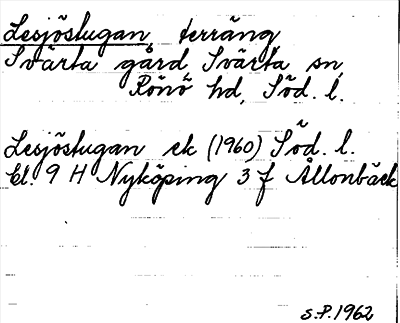 Lesjöstugan terräng
Svärta gård Svärta sn,
Rönö hd, Söd. l.
Lesjöstugan ek (1960) Söd. l.
bl. 9 H Nyköping 3 f Ållonbäck
S.P. 1962